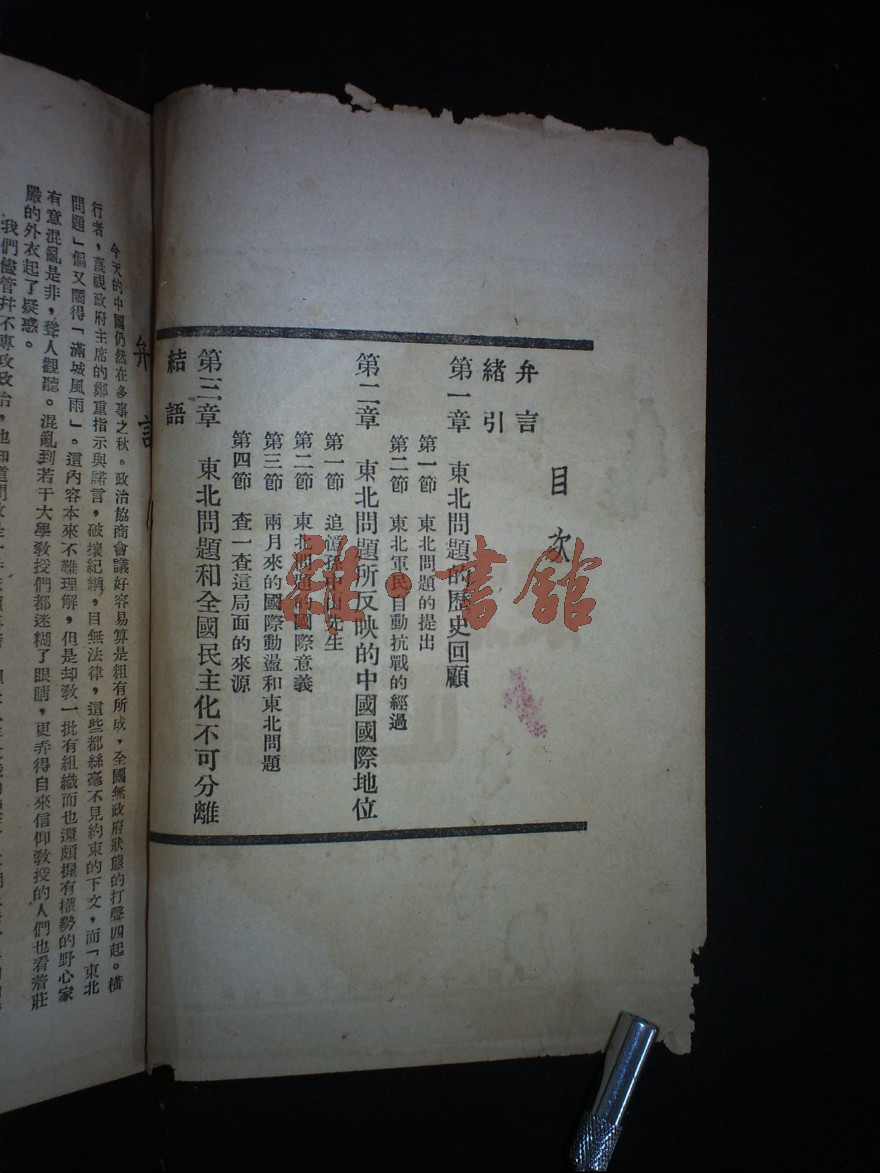 目次
弁言
緒引
第一章 東北問題的歷史回顧
第一節 東北問題的提出
第二節 東北軍民自動抗戰的經過
第二章 東北問題所反映的中國國際地位
第一節 追溯孫中山先生
第二節 東北問題的國際意義
第三節 兩月來的國際動盪和東北問題
第四節 查一查這局面的來源
第三章 東北問題和全國民主化不可分離
結語
弁言
今天的中國仍然在多事之秋。政治協商會議好容易算是組有所成,全國無政府狀態的打聲四起。橫
行者,蔑視政府主席的鄭重指示與諾言,破壞紀綱,目無法律,這些都絲毫不見約束的下文,而「東北
問題」偏又鬧得「滿城風雨」。這內容本來不難理解,但是却教一批有組織而也還頗擁有權勢的野心家
有意混亂是非,聳人觀聽。混亂到若干大學教授們都迷糊了眼睛,更弄得自來信仰教授的人們也看着莊
嚴的外衣起了疑惑。
我們儘管并不專攻政治,也知道
雜·書館